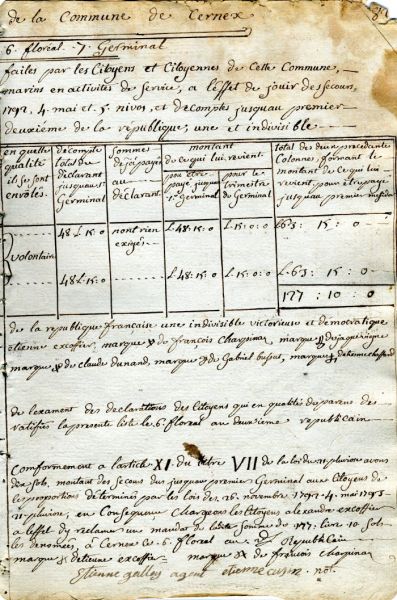 de la Commune de Cernex
6. floreal. 7. Germinal
faites par les Citoyens et Citoyennes de Cette Commune,
marins en activités de Service, a l'effet de jouir des secours,
1792, 4. mai et 5. nivos, et decomptes jusqu'au premier
deuxieme de la republique, une et indivisible
en quelle qualité ils se sont enrolés
decompte total du declarant jusqu'au 1er Germinal
sommes deja payés au declarant
montant de ce qui lui revient
pour etre payé jusqu'au 1er germinal
pour le trimestre du Germinal
total des deux precedante Colonnes, formant le montant de ce qui lui revient pour etre payé jusqu'au premier
volontair 48 L 15: 0 nont rien exigés L 48: 15: 0 L 15: 0: 0 L 63: 15: 0
48 L 15: 0 L 48: 15: 0 L 15: 0: 0 L 63: 15: 0
127 : 10 : 0
de la republique francaise une indivisible victorieuse et democratique
etienne excoffier, marque de francois Charpinaz, marque
marque de claude Dunand, marque de Gabriel bussat, marque
de l'exament des declarations des Citoyens qui en qualités de parens de
ratifiés la presente liste le 6. floreal au deuxieme republicain
Conformement a l'article XI du titre VII de la loi du 21 pluviose avons
dix sols, montant des secours dus jusqu'au premier Germinal aux Citoyens de
les proportions determinés par les lois des 26. novembre 1792 - 4. mai 1793
21. pluviose, en Consequence Chargeons les Citoyens alexandre excoffier
a l'effet d'y reclamer un mandat de ladite somme de 127. livre 10 Sols
les denomés, a Cernex ce 6. floreal au 2e. Republicain
marque de etienne excoffier marque de francois charpinaz
etienne gallay agent etienne cusin not.